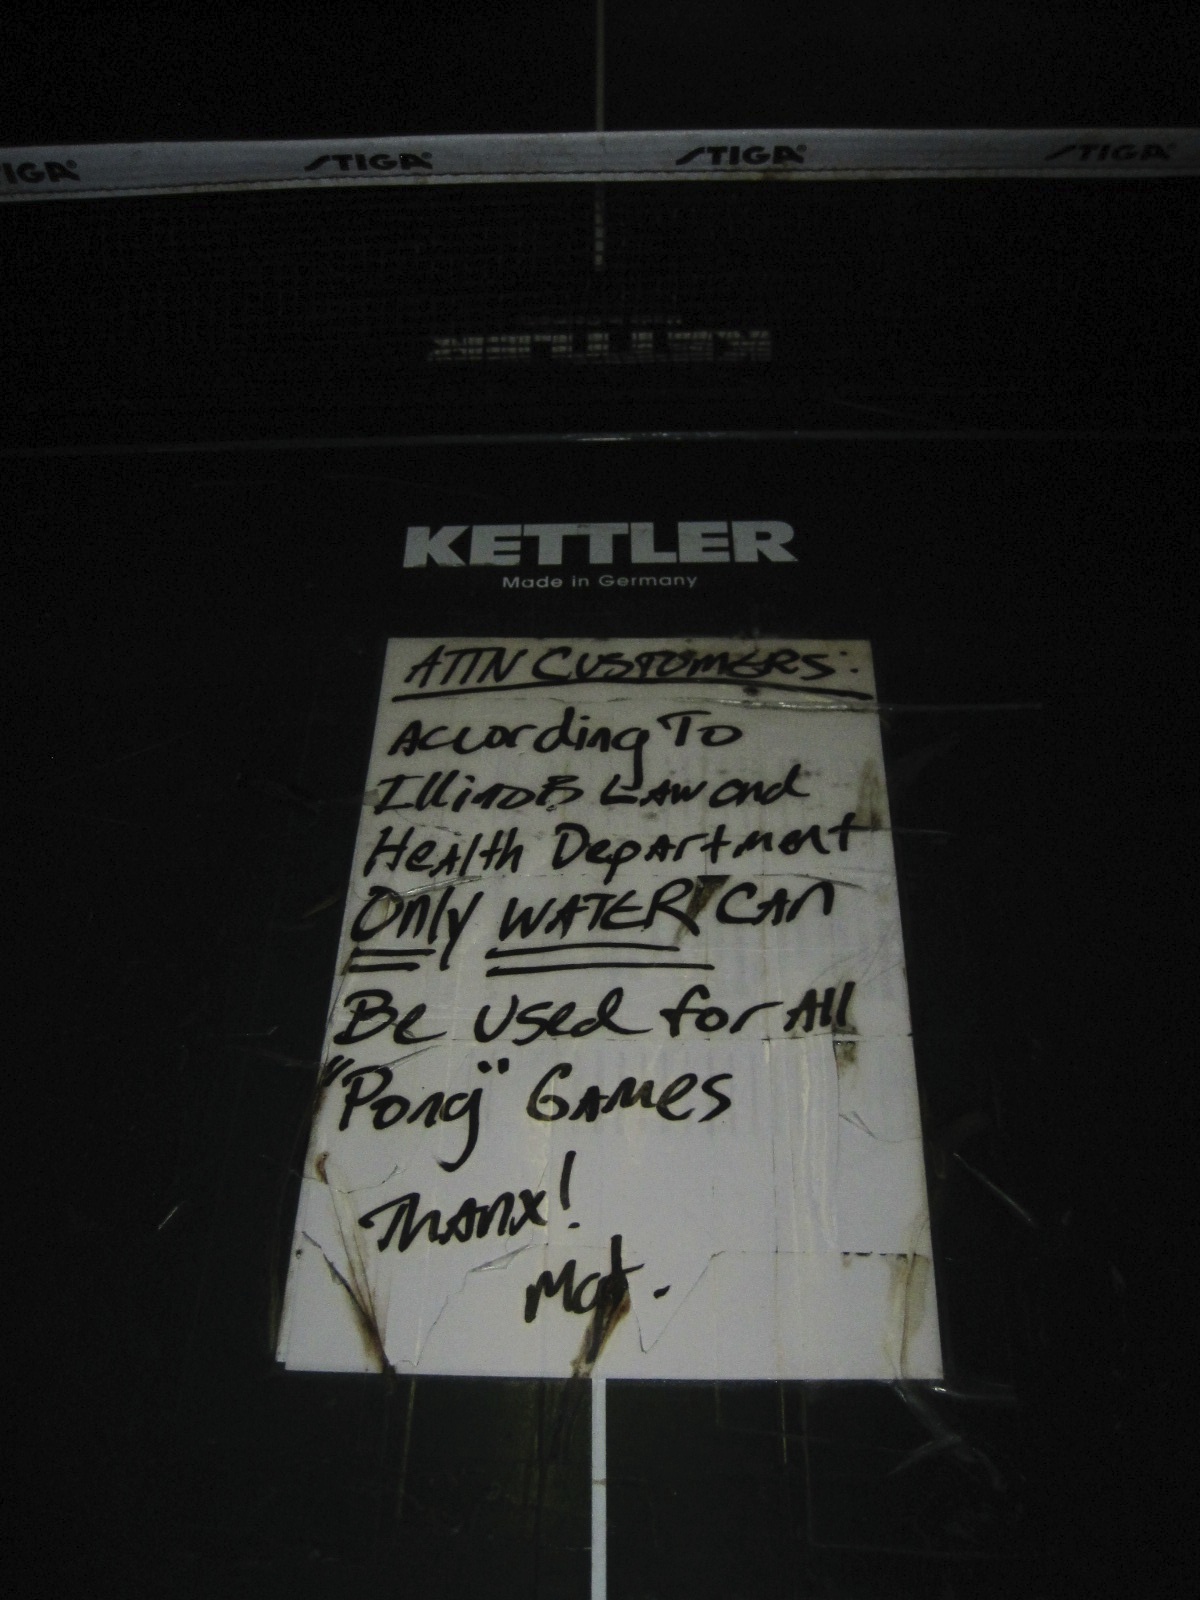 STIGA STIGA STIGA
KETTLER
Made in Germany
ATTN CUSTOMERS:
According To
Illinois Law and
Health Department
Only WATER CAN
Be used for All
"Pong" Games
Thanx!
Mgt.